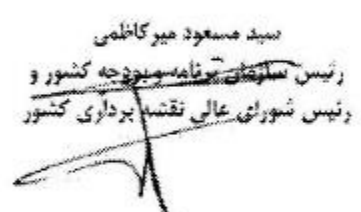 سید مسعود میرکاظمی
رئیس سازمان برنامه و بودجه کشور و
رئیس شورای عالی نقشه برداری کشور